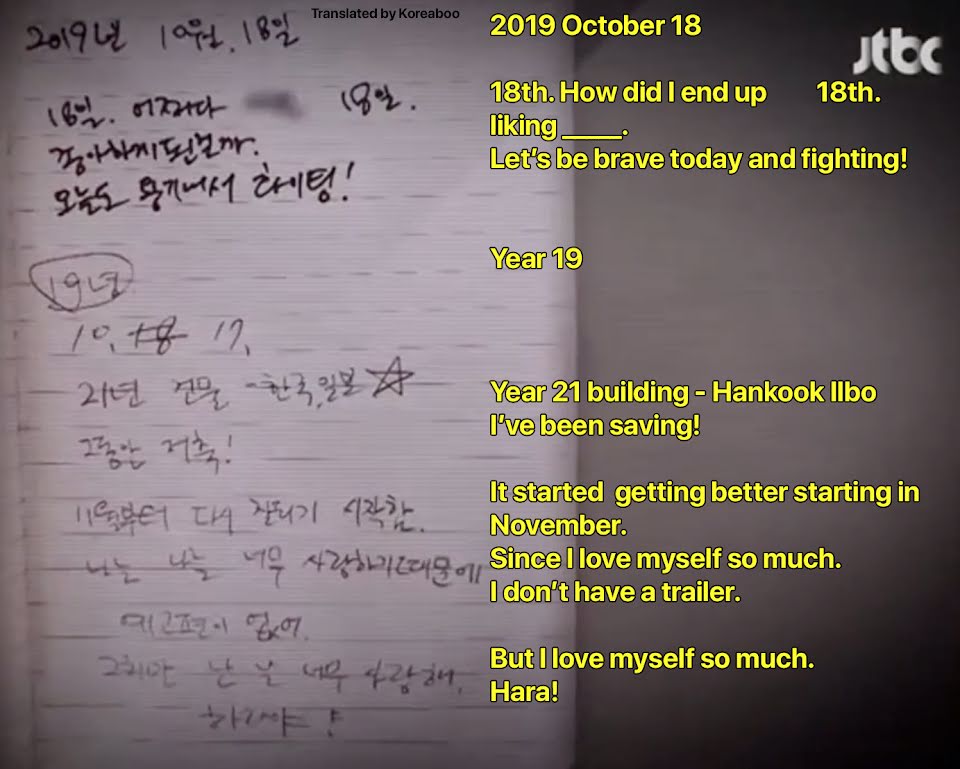 Translated by Koreaboo
jtbc
2019년 10월, 18일
18일. 어쩌다 18일.
좋아하게 된볼까.
오늘도 용기내서 화이팅!
19년
10, 18 17,
21년 건물 - 한국, 일본
그동안 저축!
11월부터 다시 잘되기 시작함.
나는 나를 너무 사랑하기 때문에
예고편이 없어.
그치만 난 날 너무 사랑해.
하라야!
2019 October 18
18th. How did I end up 18th.
liking _____.
Let's be brave today and fighting!
Year 19
Year 21 building - Hankook Ilbo
I've been saving!
It started getting better starting in
November.
Since I love myself so much.
I don't have a trailer.
But I love myself so much.
Hara!